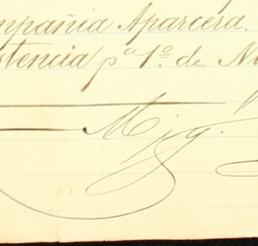 mpañia Aparcera.
stencia pª 1º de No
Mig.